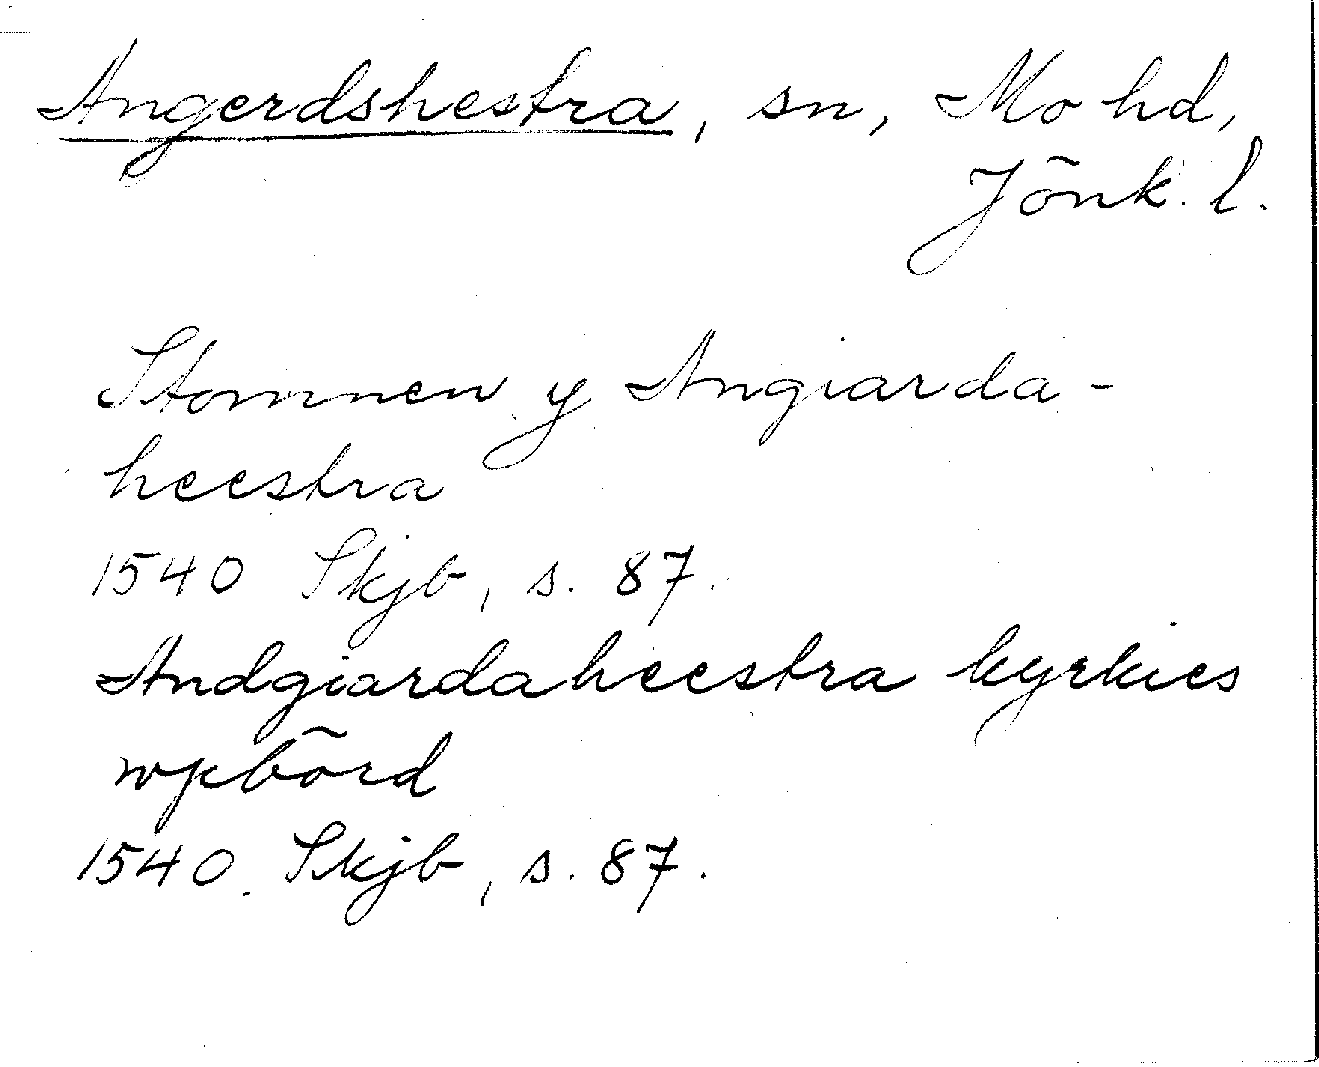 Angerdshestra, sn, Mo hd,
Jönk. l.
Stomnen y Angiarda-
heestra
1540 Skjb, s. 87.
Andgiardaheestra kyrkies
wpbörd
1540. Skjb, s. 87.